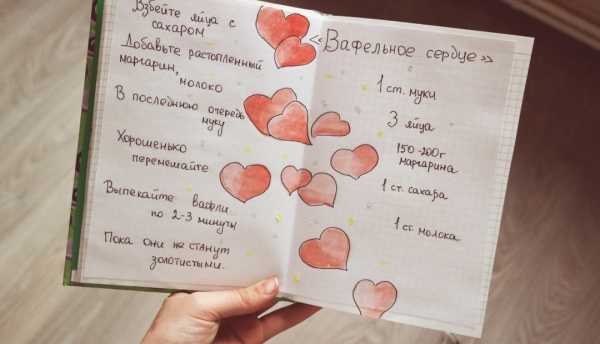 Взбейте яйца с
сахаром
Добавьте растопленный
маргарин,
молоко
В последнюю очередь
муку
Хорошенько
перемешайте
Выпекайте вафли
по 2-3 минуты
Пока они не станут
золотистыми.
«Вафельное сердце»
1 ст. муки
3 яйца
150-200г
маргарина
1 ст. сахара
1 ст. молока